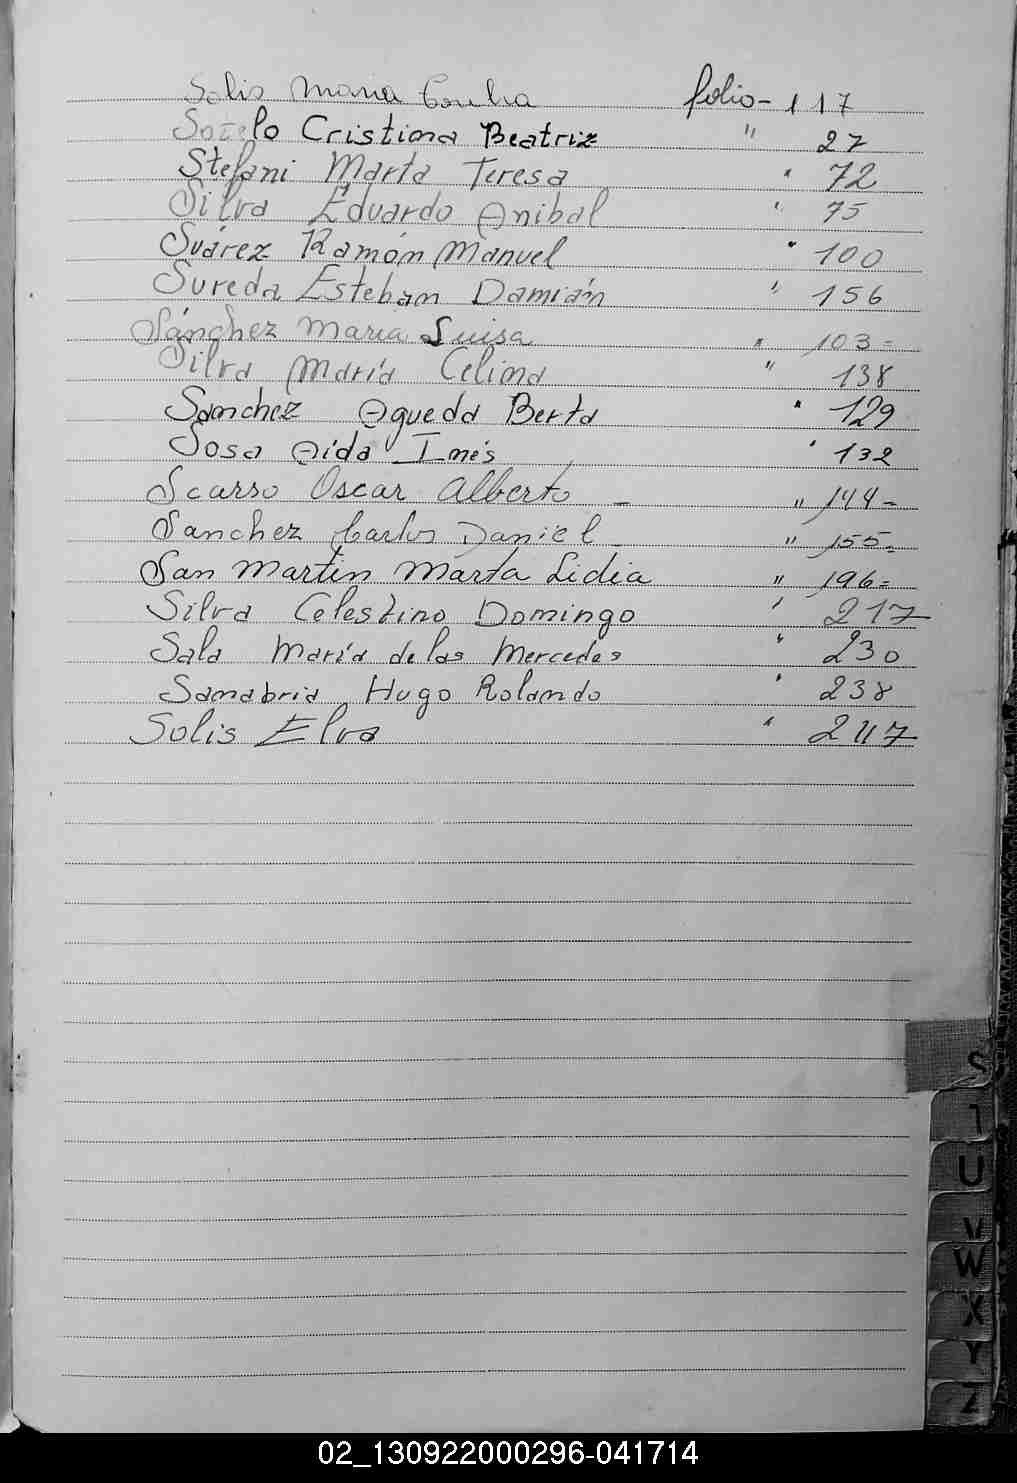 Solis Maria folio - 117
Sotelo Cristina Beatriz " 27
Stefani Marta Teresa " 72
Silva Eduardo Anibal " 75
Suárez Ramón Manuel " 100
Sureda Esteban Damián " 156
Sánchez Maria Luisa " 103 =
Silva María Celina " 138
Sanchez Agueda Berta " 129
Sosa Aída Inés " 132
Scarso Oscar Alberto - " 144 =
Sanchez Carlos Daniel - " 155 =
San Martin Marta Lidia " 196 =
Silva Celestino Domingo " 217
Sala María de las Mercedes " 230
Sanabria Hugo Rolando " 238
Solis Elva " 247
S
U
V
W
X
Y
Z
02_130922000296-041714